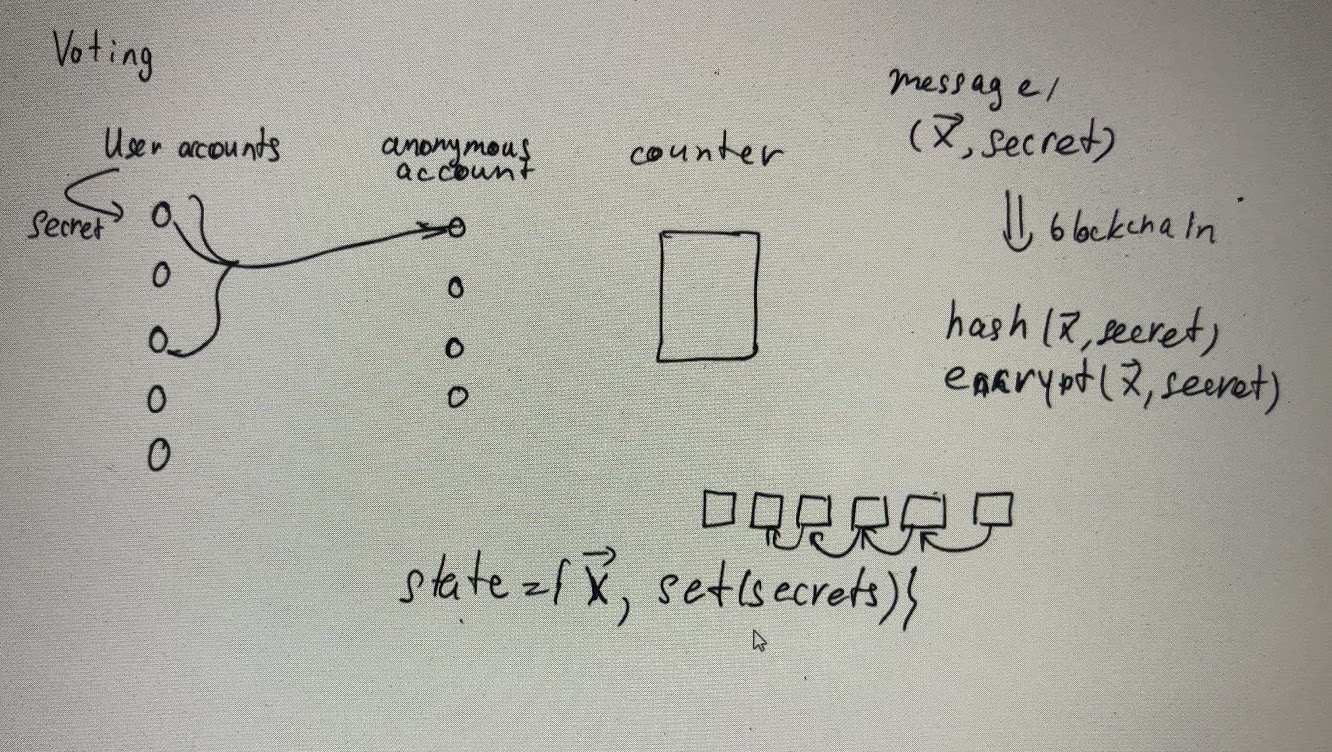 Voting
User accounts
secret
anonymous
account
counter
message,
(x⃗, secret)
⇓ blockchain
hash(x⃗, secret)
encrypt(x⃗, secret)
state = { x⃗, set(secrets)}